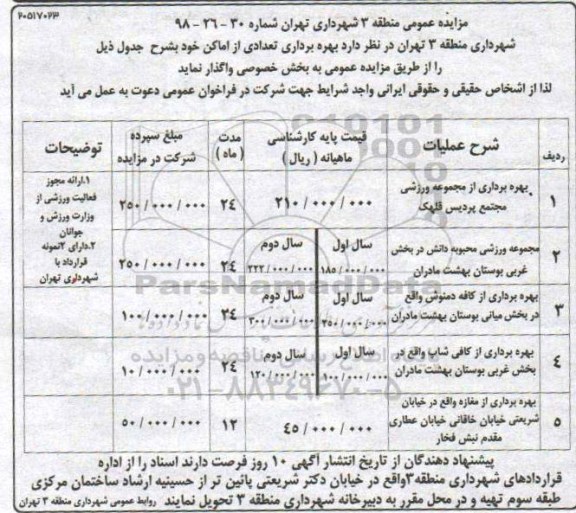 ۲۰۵۱۷۰۲۳
مزایده عمومی منطقه ۳ شهرداری تهران شماره ۳۰ - ۲۶ - ۹۸
شهرداری منطقه ۳ تهران در نظر دارد بهره برداری تعدادی از اماکن خود بشرح جدول ذیل
را از طریق مزایده عمومی به بخش خصوصی واگذار نماید
لذا از اشخاص حقیقی و حقوقی ایرانی واجد شرایط جهت شرکت در فراخوان عمومی دعوت به عمل می آید
ردیف
شرح عملیات
قیمت پایه کارشناسی ماهیانه ( ریال )
مدت ( ماه )
مبلغ سپرده شرکت در مزایده
توضیحات
۱
بهره برداری از مجموعه ورزشی
مجتمع پردیس قلهک
۲۱۰/۰۰۰/۰۰۰
۲۴
۲۵۰/۰۰۰/۰۰۰
۱.ارائه مجوز
فعالیت ورزشی از
وزارت ورزش و
جوانان
۲.دارای ۲نمونه
قرارداد با
شهرداری تهران
۲
مجموعه ورزشی محبوبه دانش در بخش
غربی بوستان بهشت مادران
سال اول
۱۸۵/۰۰۰/۰۰۰
سال دوم
۲۲۲/۰۰۰/۰۰۰
۲۴
۲۵۰/۰۰۰/۰۰۰
۳
بهره برداری از کافه دمنوش واقع
در بخش میانی بوستان بهشت مادران
سال اول
۲۵۰/۰۰۰/۰۰۰
سال دوم
۳۰۰/۰۰۰/۰۰۰
۲۴
۱۰۰/۰۰۰/۰۰۰
۴
بهره برداری از کافی شاپ واقع در
بخش غربی بوستان بهشت مادران
سال اول
۱۰۰/۰۰۰/۰۰۰
سال دوم
۱۲۰/۰۰۰/۰۰۰
۲۴
۱۰/۰۰۰/۰۰۰
۵
بهره برداری از مغازه واقع در خیابان
شریعتی خیابان خاقانی خیابان عطاری
مقدم نبش فخار
۴۵/۰۰۰/۰۰۰
۱۲
۵۰/۰۰۰/۰۰۰
پیشنهاد دهندگان از تاریخ انتشار آگهی ۱۰ روز فرصت دارند اسناد را از اداره
قراردادهای شهرداری منطقه۳واقع در خیابان دکتر شریعتی پائین تر از حسینیه ارشاد ساختمان مرکزی
طبقه سوم تهیه و در محل مقرر به دبیرخانه شهرداری منطقه ۳ تحویل نمایند روابط عمومی شهرداری منطقه ۳ تهران
ParsNamadData
۰۲۱-۸۸۳۴۹۶۷۰-۵